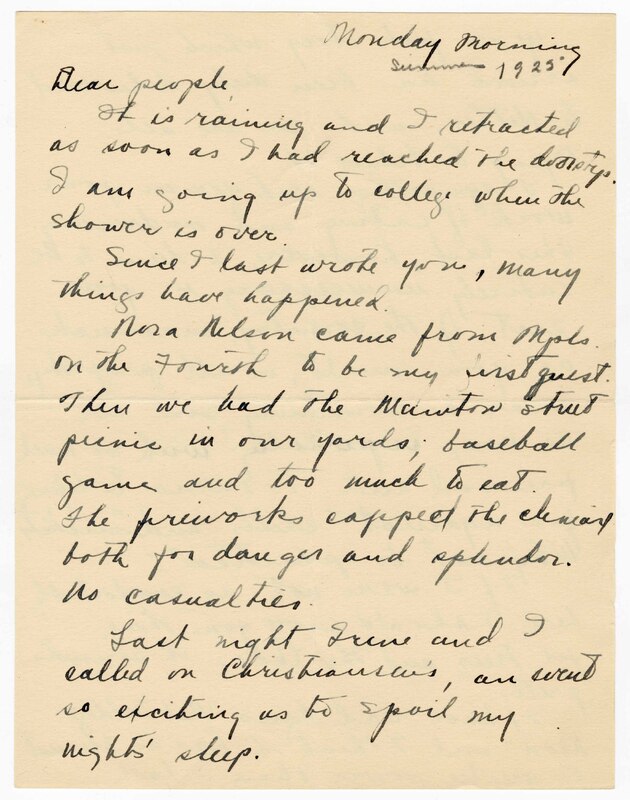 Monday Morning
Summer 1925
Dear people,
It is raining and I retracted
as soon as I had reached the doorstep.
I am going up to college when the
shower is over.
Since I last wrote you, many
things have happened.
Nora Nelson came from Mpls.
on the Fourth to be my first guest.
Then we had the Manitou Street
picnic in our yards; baseball
game and too much to eat.
The fireworks capped the climax
both for danger and splendor.
No casualties.
Last night Irene and I
called on Christiansen's, an event
so exciting as to spoil my
nights' sleep.